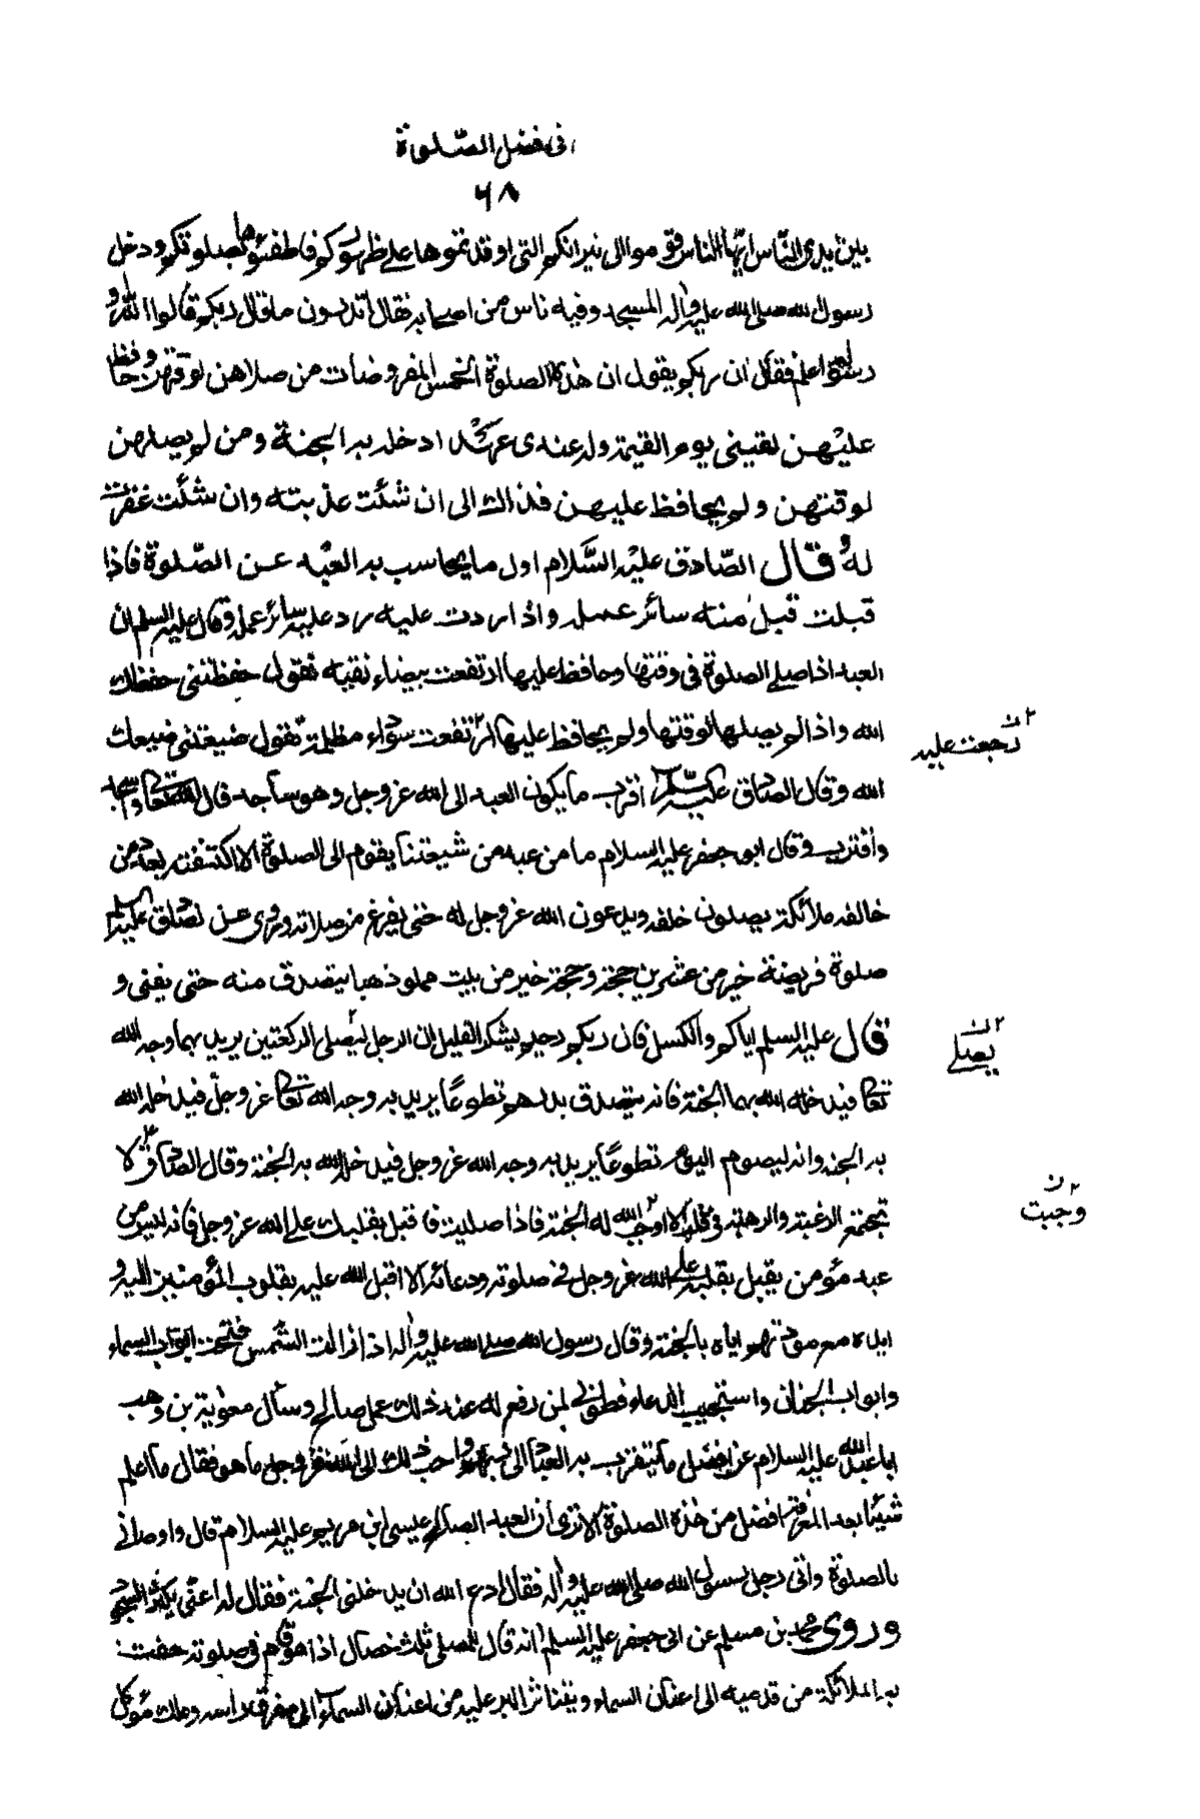 فی فضل الصّلوة
٦٨
بين يدى النّاس ايّها الناس قوموا الى نيرانكم التى اوقدتموها على ظهوركم فاطفئوها بصلوتكم ودخل
رسول الله صلى الله عليه واله المسجد وفيه ناس من اصحابه فقال اتدرون ما قال ربكم قالوا الله و
رسوله اعلم فقال ان ربكم يقول ان هذه الصلوة الخمس المفروضات من صلاهن لوقتهن وحافظ
عليهن لقينى يوم القيمة وله عندى عهد ادخله به الجنة ومن لم يصلهن
لوقتهن ولم يحافظ عليهن فذلك الى ان شئت عذبته وان شئت غفرت
له وقال الصّادق عليه السَّلام اول ما يحاسب به العبد عن الصّلوة فاذا
قبلت قبل منه سائر عمله واذا ردت عليه رد عليه سائر عمله وقال عليه السلم ان
العبد اذا صلى الصلوة فى وقتها وحافظ عليها ارتفعت بيضاء نقية تقول حفظتنى حفظك
الله واذا لم يصلها لوقتها ولم يحافظ عليها ارتفعت سوداء مظلمة تقول ضيعتنى ضيعك
الله وقال الصادق عليه السلم اقرب ما يكون العبد الى الله عز وجل وهو ساجد قال الله تعالى واسجد
واقترب وقال ابو جعفر عليه السلام ما من عبد من شيعتنا يقوم الى الصلوة الا اكتنفته بعدد من
خالفه ملائكة يصلون خلفه ويدعون الله عز وجل له حتى يفرغ من صلاته وروى عن الصادق عليه السلم
صلوة فريضة خير من عشرين حجة وحجة خير من بيت مملو ذهبا يتصدق منه حتى يفنى و
قال عليه السلم اياكم والكسل فان ربكم رحيم يشكر القليل ان الرجل ليصلى الركعتين يريد بهما وجه الله
تعالى فيدخله الله بهما الجنة وانه ليتصدق بدرهم تطوعًا يريد به وجه الله تعالى عز وجل فيدخله الله
به الجنة وانه ليصوم اليوم تطوعًا يريد به وجه الله عز وجل فيدخله الله به الجنة وقال الصادق ع لا
تجتمع الرغبة والرهبة فى قلب الا اوجب الله له الجنة فاذا صليت فاقبل بقلبك على الله عز وجل فانه ليس من
عبد مؤمن يقبل بقلبه على الله عز وجل فى صلوته ودعائه الا اقبل الله عليه بقلوب المؤمنين اليه و
ايده مع مودتهم اياه بالجنة وقال رسول الله صلى الله عليه واله اذا زالت الشمس فتحت ابواب السماء
وابواب الجنان واستجيب الدعاء فطوبى لمن رفع له عند ذلك عمل صالح وسأل معوية بن وهب
ابا عبد الله عليه السلام عن افضل ما يتقرب به العباد الى ربهم واحب ذلك الى الله عز وجل ما هو فقال ما اعلم
شيئا بعد المعرفة افضل من هذه الصلوة الا ترى ان العبد الصالح عيسى ابن مريم عليه السلام قال واوصانى
بالصلوة واتى رجل رسول الله صلى الله عليه واله فقال ادع الله ان يدخلنى الجنة فقال له اعنّى بكثرة السجود
وروى محمد بن مسلم عن ابى جعفر عليه السلم انه قال للمصلى ثلث خصال اذا هو قام فى صلوته حفت
به الملائكة من قدميه الى اعنان السماء ويتناثر البر عليه من اعنان السماء الى مفرق راسه وملك موكل
ن
رجعت عليه
ن
يصلى
ن
وجبت